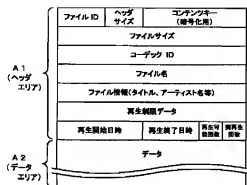 A1
(ヘッダ
エリア)
ファイル ID
ヘッダ
サイズ
コンテンツキー
(暗号化用)
ファイルサイズ
コーデック ID
ファイル名
ファイル情報(タイトル、アーティスト名等)
再生制限データ
再生開始日時
再生終了日時
再生可
能回数
演再生
回数
A2
(データ
エリア)
データ